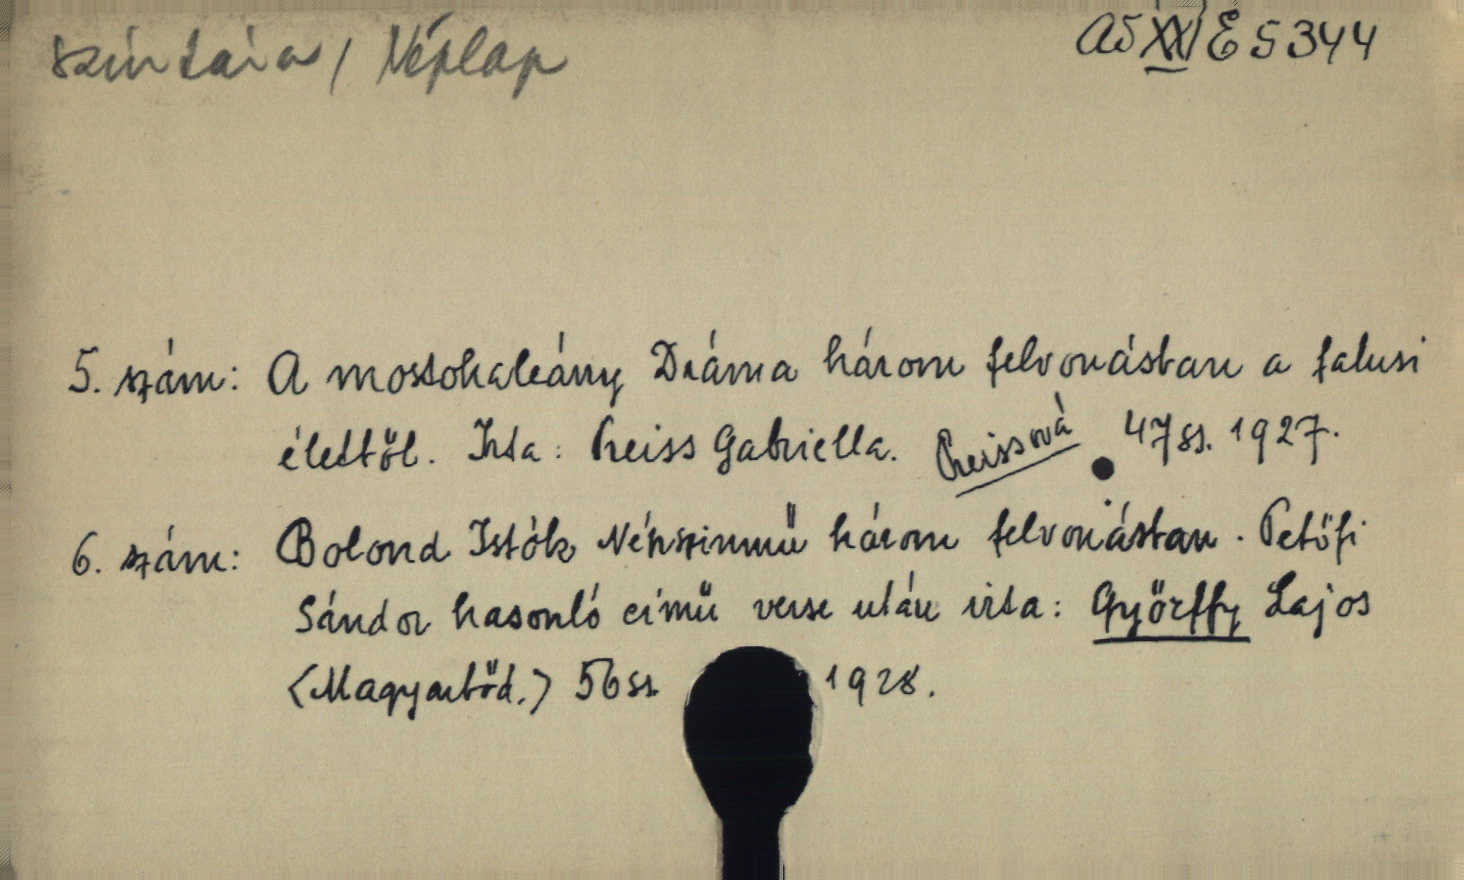 színtára / Néplap
Ad XXI E 5344
5. szám: A mostohaleány Dráma három felvonásban a falusi
élettől. Irta: Preiss Gabriella. Preissová 47 ss. 1927.
6. szám: Bolond Istók Népszinmű három felvonásban. Petőfi
Sándor hasonló című verse után irta: Győrffy Lajos
<Magyarbőd.> 56 ss. 1928.